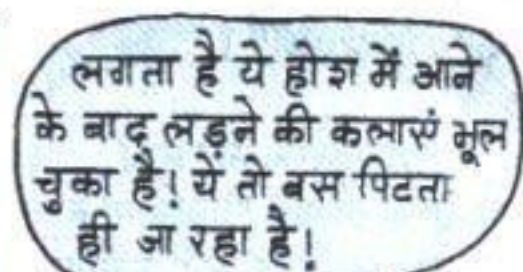 लगता है ये होश में आने
के बाद लड़ने की कलाएं भूल
चुका है! ये तो बस पिटता
ही जा रहा है!